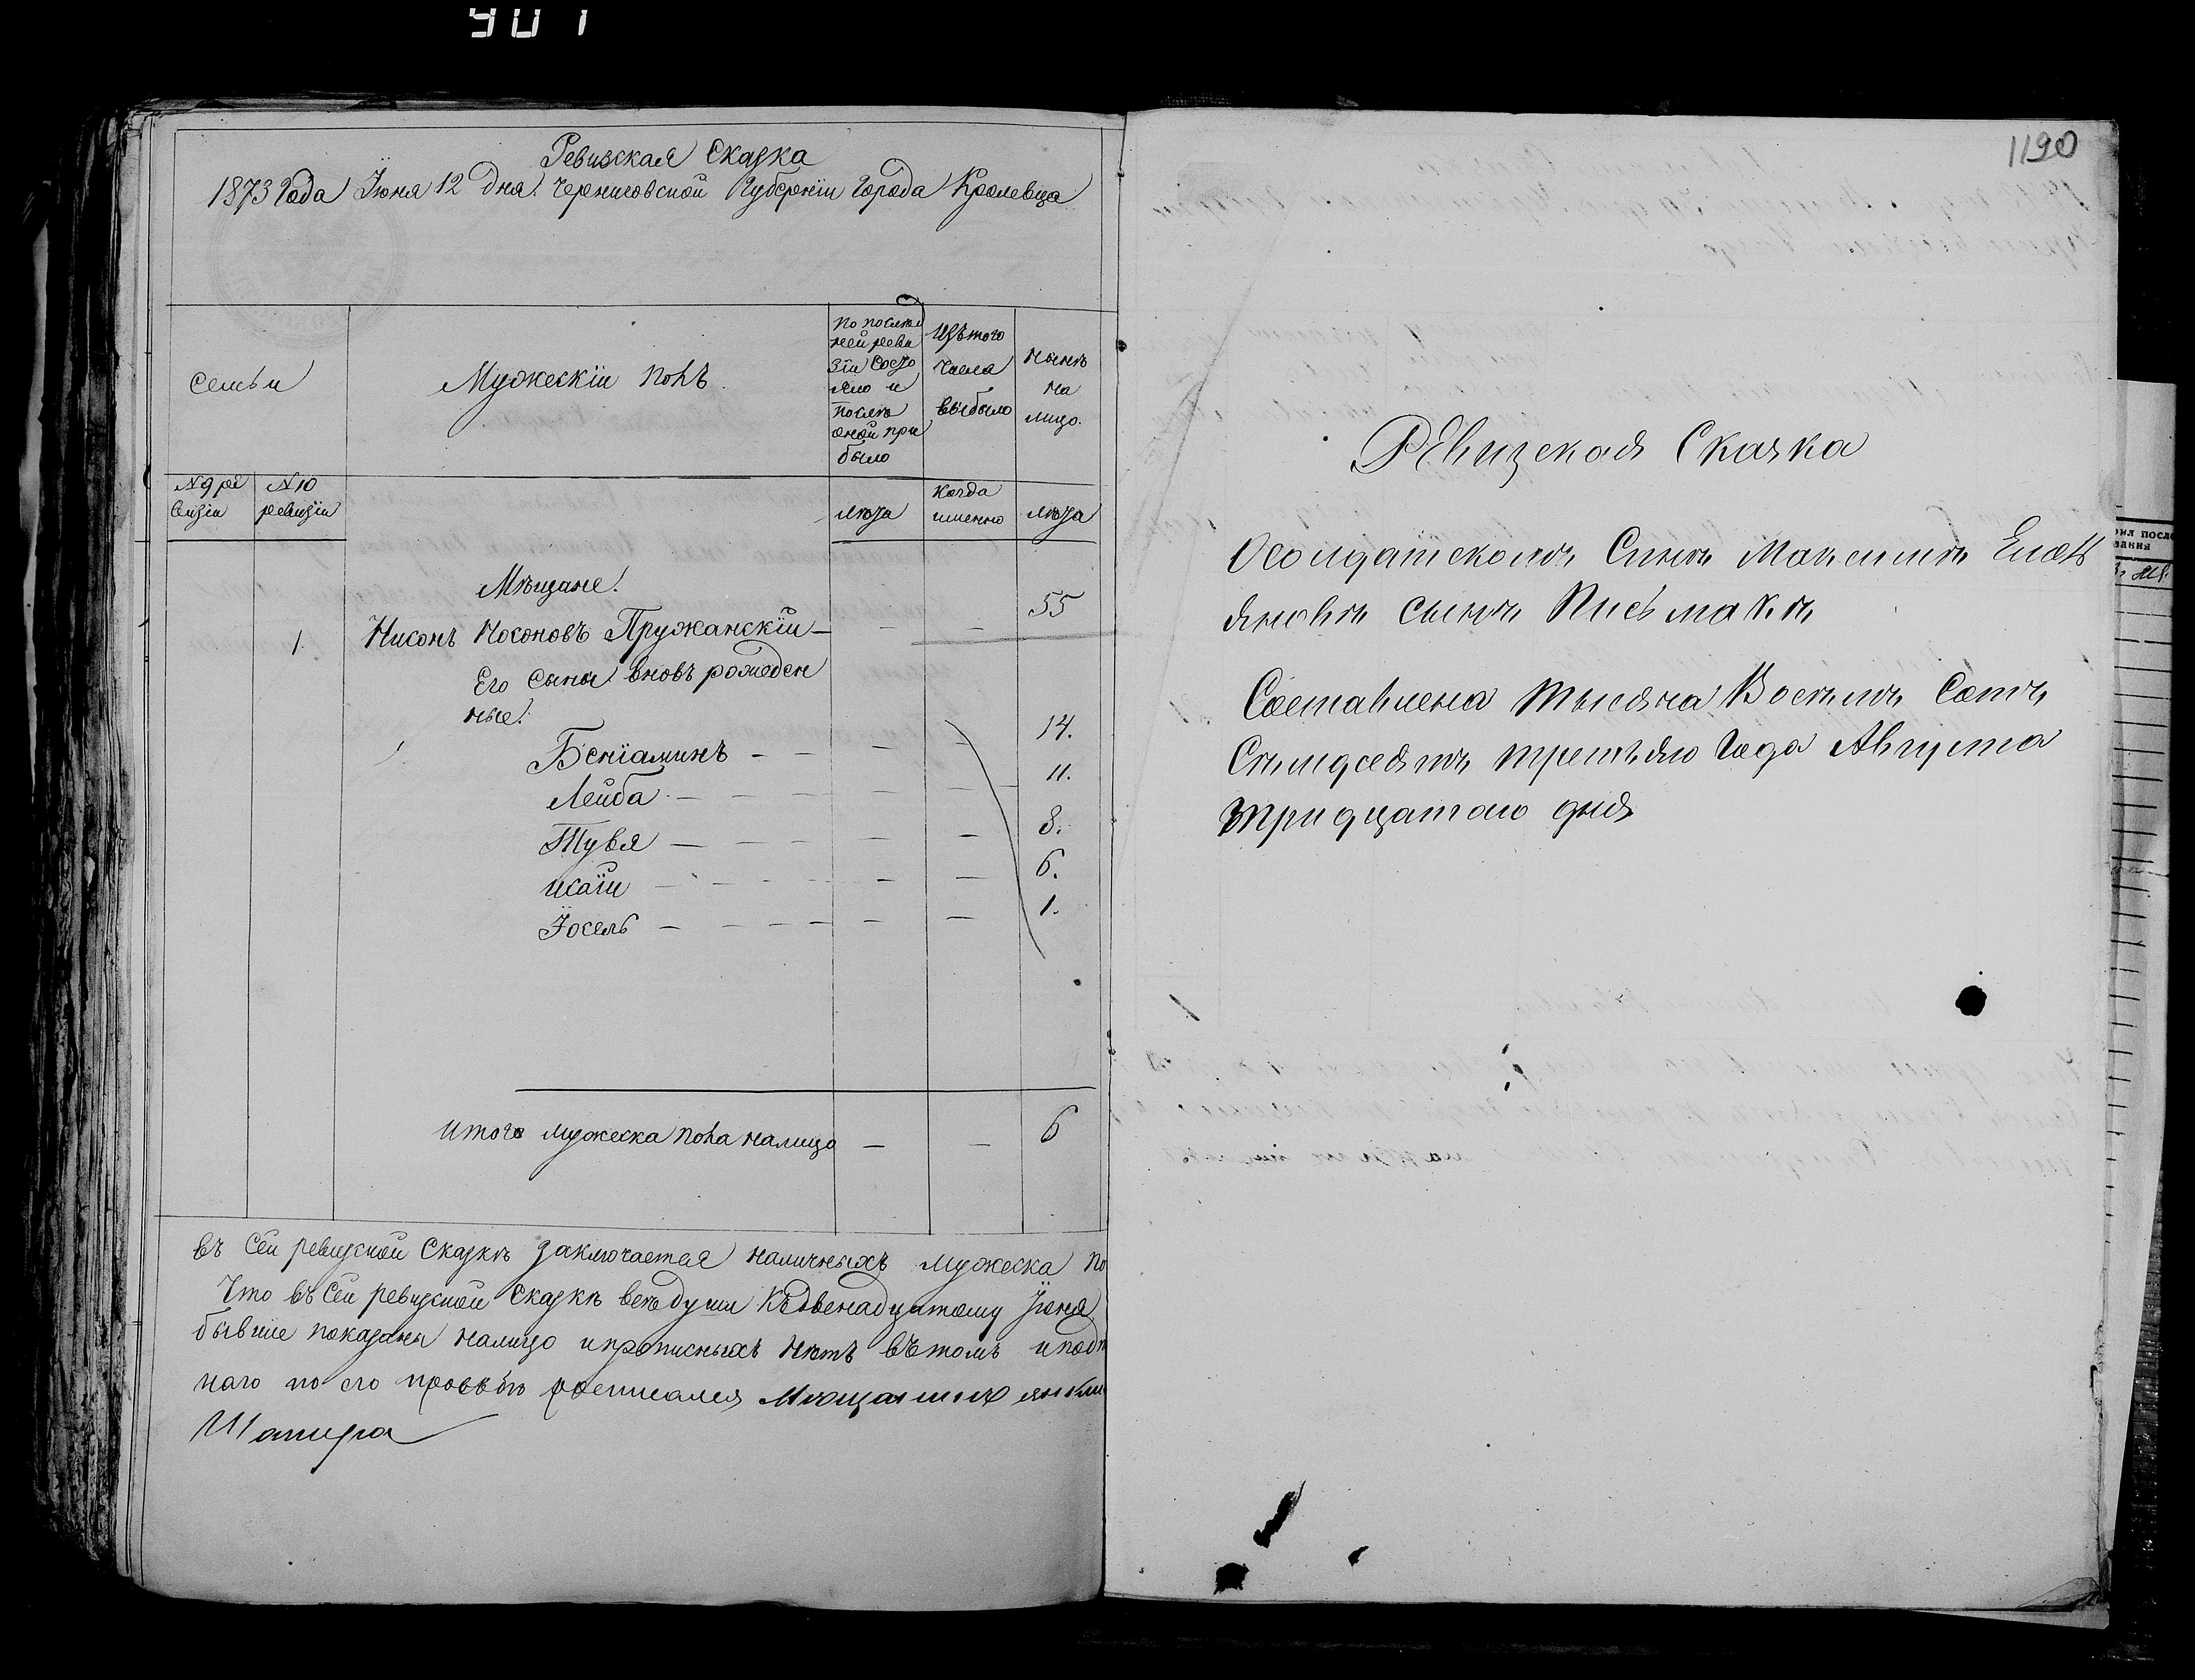 901
Ревизская Сказка
1873 Года Їюня 12 дня. Черниговской Губернїи Города Кролевца
Семьи
Мужескїи полъ
По послѣд
ней реви
зїи состо
яло и
послѣ
оной при
было
Изъ того
числа
выбыло
Нынѣ
на
лицо.
№ 9 ре
визїи
№ 10
ревизїи
лѣта
когда
именно
лѣта
Мѣщане.
1. Нисонъ Носоновъ Пружанскїи — — — 55
Его сыны вновь рожеден
ные.
Бенїаминъ — — — 14.
Лейба — — — — — 11.
Тувя — — — — — 8.
Исаїи — — — — — 6.
Їосель — — — — — 1.
Итого мужеска пола налицо — — 6
въ сей ревизской Сказкѣ заключается наличныхъ мужеска по
Что въ сей ревизской Сказкѣ всѣ души Къ двенадцатому Їюня
бывшие показаны налицо и прописныхъ нѣтъ въ томъ и подп
наго по его прозьбѣ росписался Мѣщанинъ
Шапира
1190
Ревизская Сказка
О солдатскомъ Синѣ Максимѣ
яновѣ сынѣ Письмакѣ
Составлена тысяча Восемъ Сотъ
Семдесятъ третьяго Года Августа
тридцатого дня